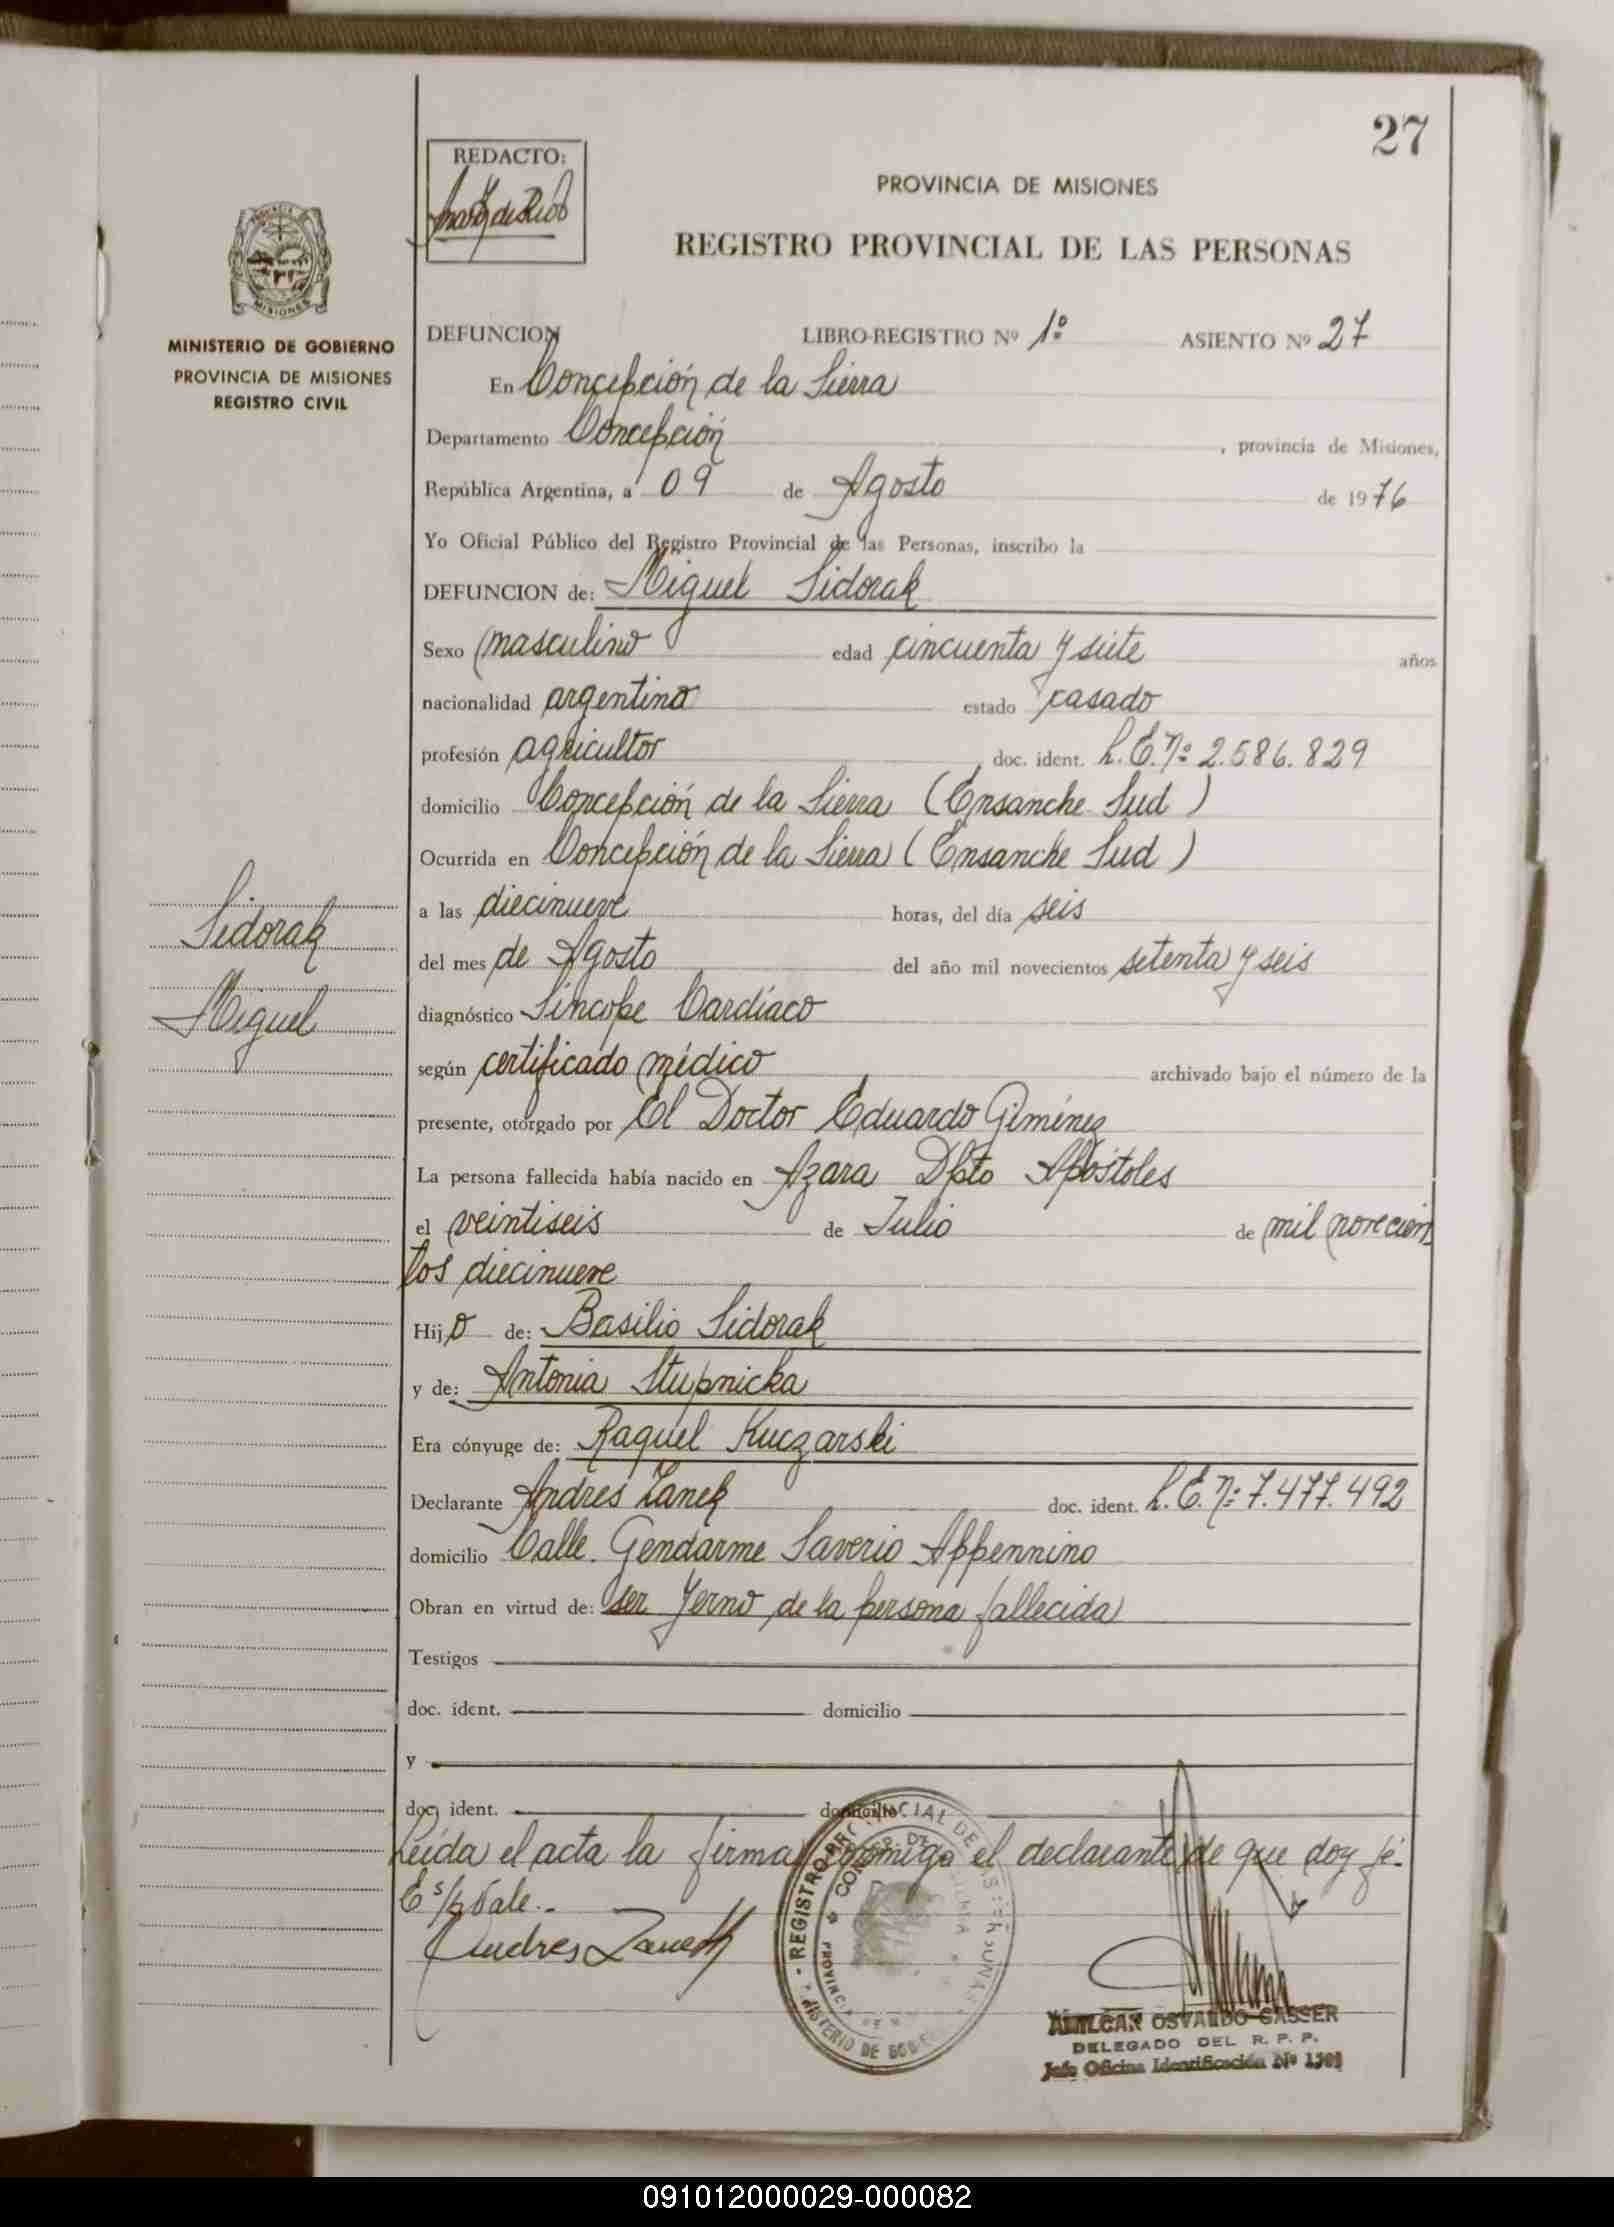 27
REDACTO:
PROVINCIA DE MISIONES
REGISTRO PROVINCIAL DE LAS PERSONAS
MISIONES
MINISTERIO DE GOBIERNO
PROVINCIA DE MISIONES
REGISTRO CIVIL
DEFUNCION LIBRO-REGISTRO Nº 1º ASIENTO Nº 27
En Concepción de la Sierra
Departamento Concepción, provincia de Misiones,
República Argentina, a 09 de Agosto de 1976
Yo Oficial Público del Registro Provincial de las Personas, inscribo la
DEFUNCION de: Miguel Sidorak
Sexo masculino edad cincuenta y siete años
nacionalidad argentino estado casado
profesión agricultor doc. ident. L.E.Nº 2.586.829
domicilio Concepción de la Sierra (Ensanche Sud)
Ocurrida en Concepción de la Sierra (Ensanche Sud)
a las diecinueve horas, del día seis
del mes de Agosto del año mil novecientos setenta y seis
diagnóstico Síncope Cardíaco
según certificado médico archivado bajo el número de la
presente, otorgado por El Doctor Eduardo Giménez
La persona fallecida había nacido en Azara Dpto Apóstoles
el veintiseis de Julio de mil novecien
tos diecinueve
Hijo de: Basilio Sidorak
y de: Antonia Stupnicka
Era cónyuge de: Raquel Kuczarski
Declarante Andres Zanek doc. ident. L.E.Nº 7.477.492
domicilio Calle Gendarme Saverio Appennino
Obran en virtud de: ser Yerno de la persona fallecida
Testigos
doc. ident. domicilio
y
doc. ident. domicilio
Leída el acta la firma conmigo el declarante de que doy fé.
E s/p Vale.-
Sidorak
Miguel
Andres Zanek
AMILCAR OSVALDO GASSER
DELEGADO DEL R. P. P.
Jefe Oficina Identificación Nº
091012000029-000082